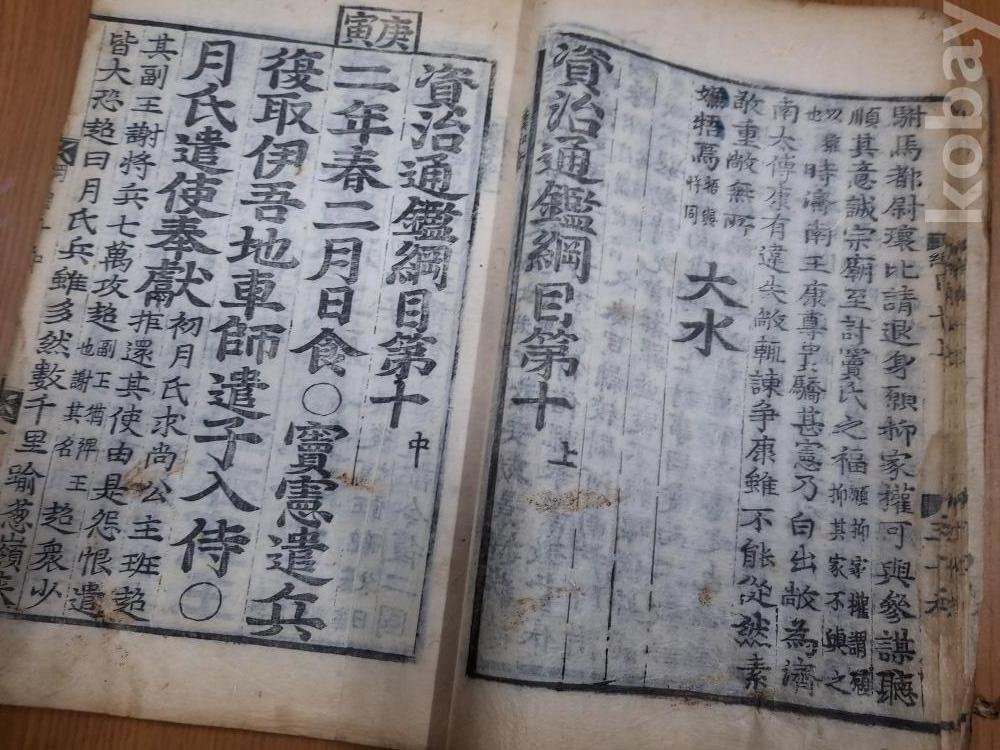 駙馬都尉瓌比請退身願抑家權可與參謀聽
順其意誠宗廟至計竇氏之福
願抑家權謂願
抑其家不與之
以權
也
時濟南王康尊貴驕甚憲乃白出敞為濟
南太傅康有違失敞輒諫争康雖不能從然素
敬重敞無所
嫌牾焉
牾與
忤同
大水
資治通鑑綱目第十
上
庚寅
資治通鑑綱目第十
中
二年春二月日食○竇憲遣兵
復取伊吾地車師遣子入侍○
月氏遣使奉獻
初月氏求尚公主班超
拒還其使由是怨恨遣
其副王謝將兵七萬攻超
副王猶裨王
也謝其名
超衆少
皆大恐超曰月氏兵雖多然數千里踰葱嶺來
kobay